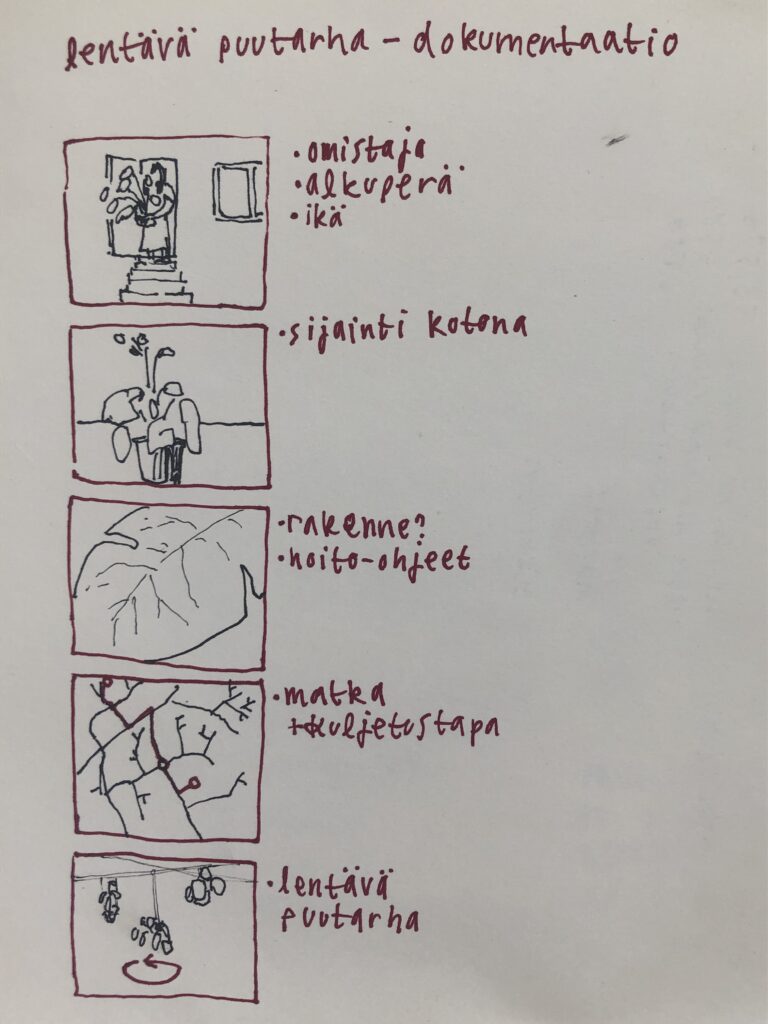 lentävä puutarha – dokumentaatio
• omistaja
• alkuperä
• ikä
• sijainti kotona
• rakenne?
• hoito-ohjeet
• matka
+kuljetustapa
• lentävä
puutarha